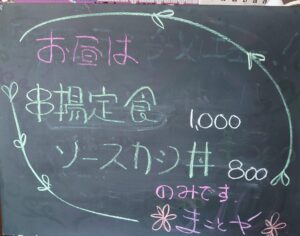 お昼は
串揚定食 1,000
ソースカツ丼 800
のみです
まことや